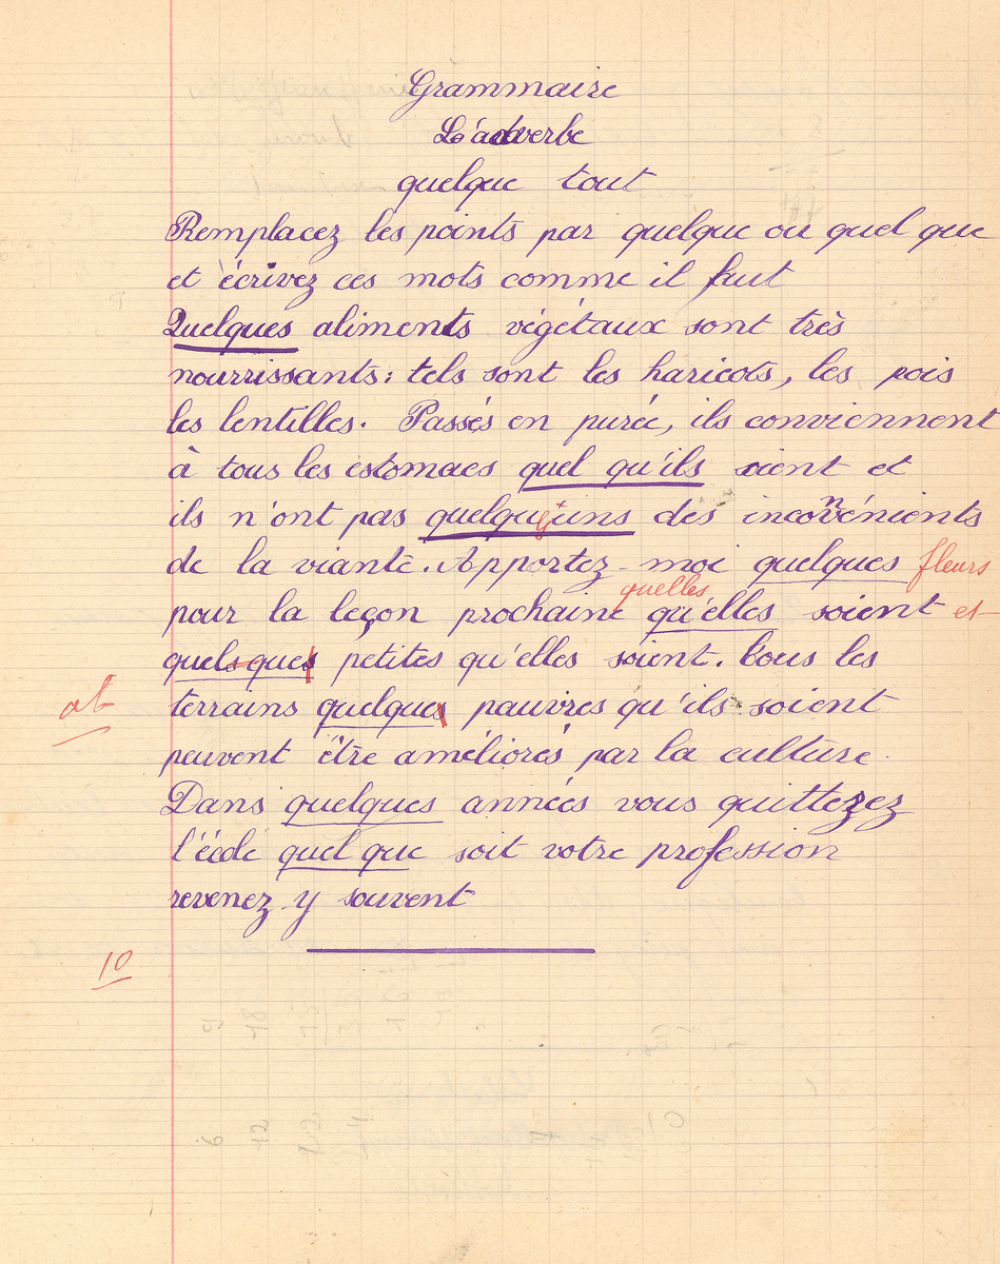 Grammaire
L'adverbe
quelque tout
Remplacez les points par quelque ou quel que
et écrivez ces mots comme il faut
Quelques aliments végétaux sont très
nourrissants : tels sont les haricots, les pois
les lentilles. Passés en purée, ils conviennent
à tous les estomacs quel qu'ils soient et
ils n'ont pas quelques uns des inconvénients
de la viante. Apportez-moi quelques fleurs
quelles
pour la leçon prochaine qu'elles soient et
quels-ques petites qu'elles soient. Tous les
ab
terrains quelques pauvres qu'ils soient
peuvent être améliorés par la culture.
Dans quelques années vous quitterez
l'école quel que soit votre profession
revenez-y souvent
10